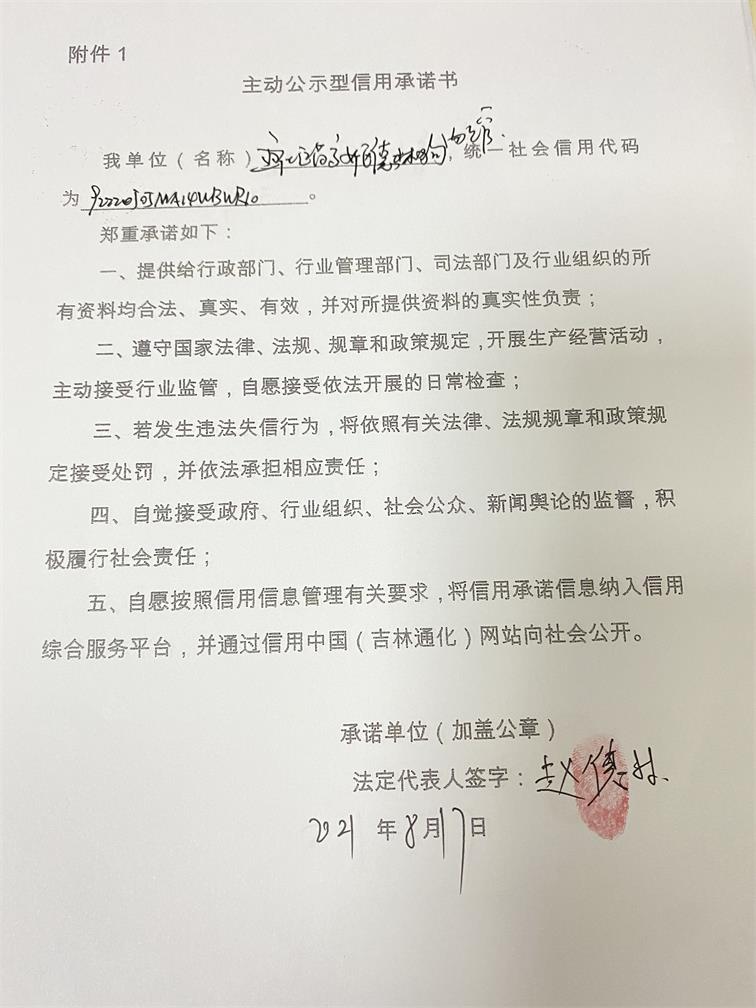 附件1
主动公示型信用承诺书
我单位(名称) 德林 ,统一社会信用代码
为 92220505MA14UBWR10 。
郑重承诺如下:
一、提供给行政部门、行业管理部门、司法部门及行业组织的所
有资料均合法、真实、有效,并对所提供资料的真实性负责;
二、遵守国家法律、法规、规章和政策规定,开展生产经营活动,
主动接受行业监管,自愿接受依法开展的日常检查;
三、若发生违法失信行为,将依照有关法律、法规规章和政策规
定接受处罚,并依法承担相应责任;
四、自觉接受政府、行业组织、社会公众、新闻舆论的监督,积
极履行社会责任;
五、自愿按照信用信息管理有关要求,将信用承诺信息纳入信用
综合服务平台,并通过信用中国(吉林通化)网站向社会公开。
承诺单位(加盖公章)
法定代表人签字:赵德林
2021年8月17日